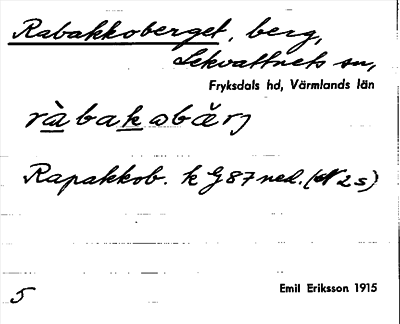 Rabakkoberget, berg,
Lekvattnets sn,
Fryksdals hd, Värmlands län
ràbakəbærj
Rapakkob. k G 87 ned. (N 2 s)
5
Emil Eriksson 1915